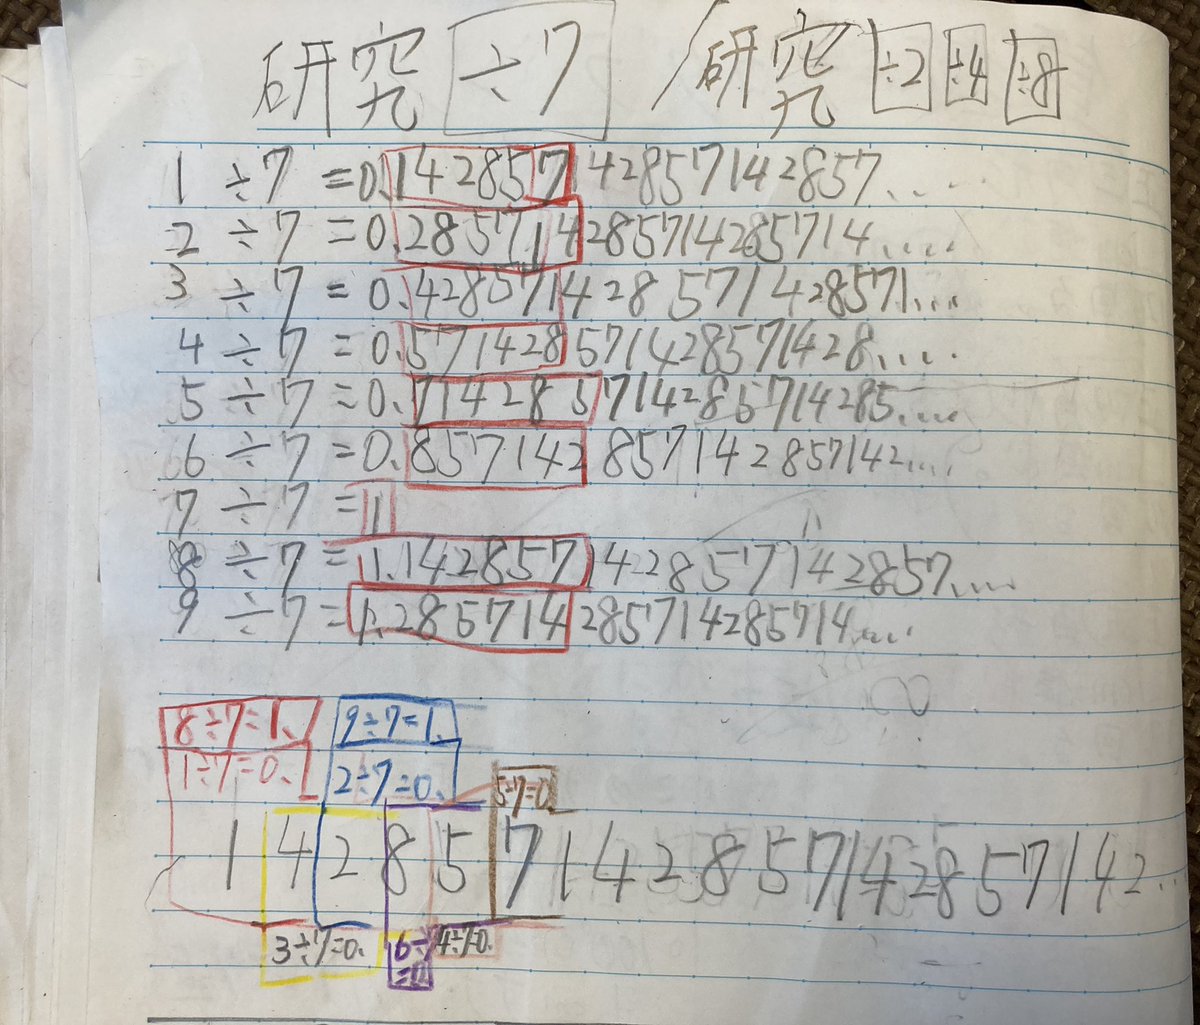 研究 ÷7 / 研究 ÷2 ÷4 ÷8
1 ÷7 =0.142857142857142857.....
2 ÷7 =0.285714285714285714....
3 ÷7 = 0.428571428571428571...
4 ÷7 =0.571428571428571428....
5 ÷7 =0.714285714285714285....
6 ÷7 =0.857142857142857142....
7 ÷7 =1
8 ÷7 =1.142857142857142857....
9 ÷7 =1.285714285714285714....
8÷7=1. 9÷7=1.
1÷7=0. 2÷7=0. 5÷7=0.
142857142857142857142...
3÷7=0. 6÷7=0 4÷7=0.